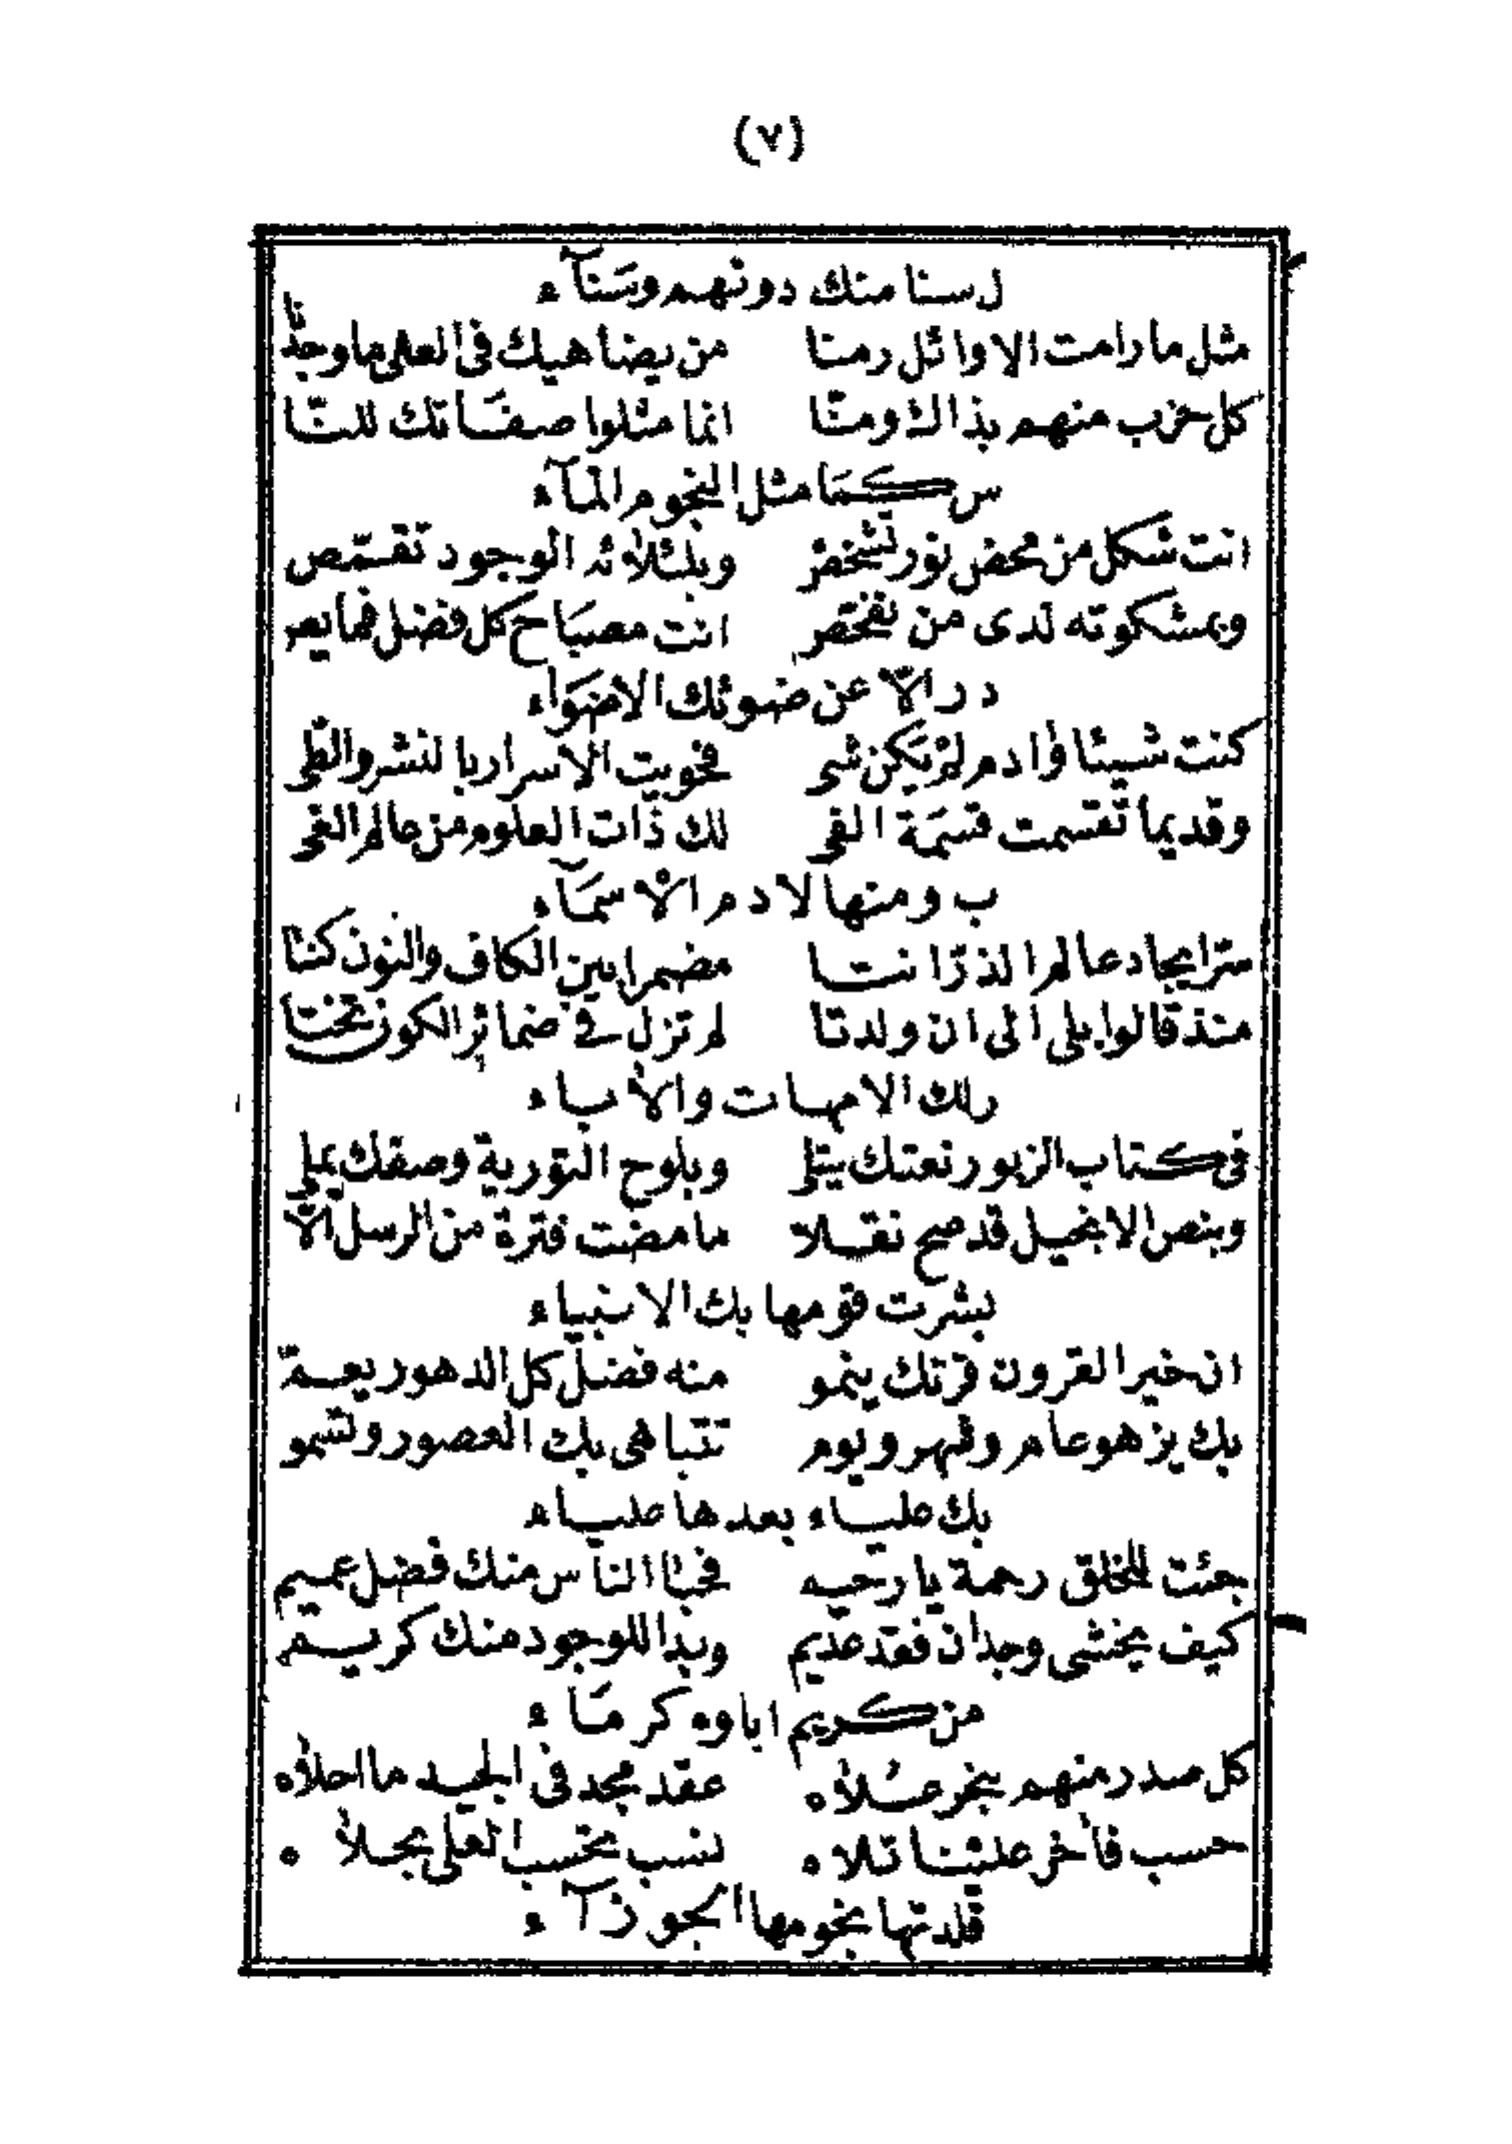 (٧)
ل سنا منك دونهم وسَنآء
مثل ما رامت الاوائل رمنا من يضاهيك فى العلى ما وجدنا
كل حزب منهم بذاك ومنّا انما مثلوا صفَاتك للنّا
س كَمَا مثل النجوم المآء
انت شكل من محض نور تشخص وبلئلائه الوجود تقمّص
وبمشكوته لدى من تفحص انت مصبَاح كل فضل فما يصـ
در الاّ عن ضوئك الاضوَاء
كنت شيئا وادم لم يَكن شى فحويت الاسرار بالنشر والطى
وقديما تقسمت قسمَة الفى لك ذات العلوم من عالم الغى
ب ومنها لادم الاسمَآء
سرّ ايجاد عالم الذرّ انتا مضمرا بين الكاف والنون كنتا
منذ قالوا بلى الى ان ولدتا لم تزل فى ضمائر الكون تختا
رلك الامهات والأباء
فى كتاب الزبور نعتك يتلى وبلوح التورية وصفك يملى
وبنص الانجيل قد صح نقلا ما مضت فترة من الرسل الاّ
بشرت قومها بك الانبياء
ان خير القرون قرنك ينمو منه فضل كل الدهور يعمّ
بك يزهو عام وشهر ويوم تتباهى بك العصور وتسمو
بك علياء بعدها علياء
جئت للخلق رحمة يا رحيم فحبا الناس منك فضل عميم
كيف يخشى وجدان فقد عديم وبدا للوجود منك كريم
من كريم اباوه كرمَاء
كل صدر منهم بنحر علاه عقد مجد فى الجيد ما احلاه
حسب فأخر علينا تلاه نسب تحسب العلى بحلاه
قلدتها نجومها الجوزآء